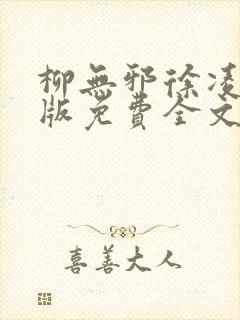 柳無邪徐凌
版免費全文
喜善大人